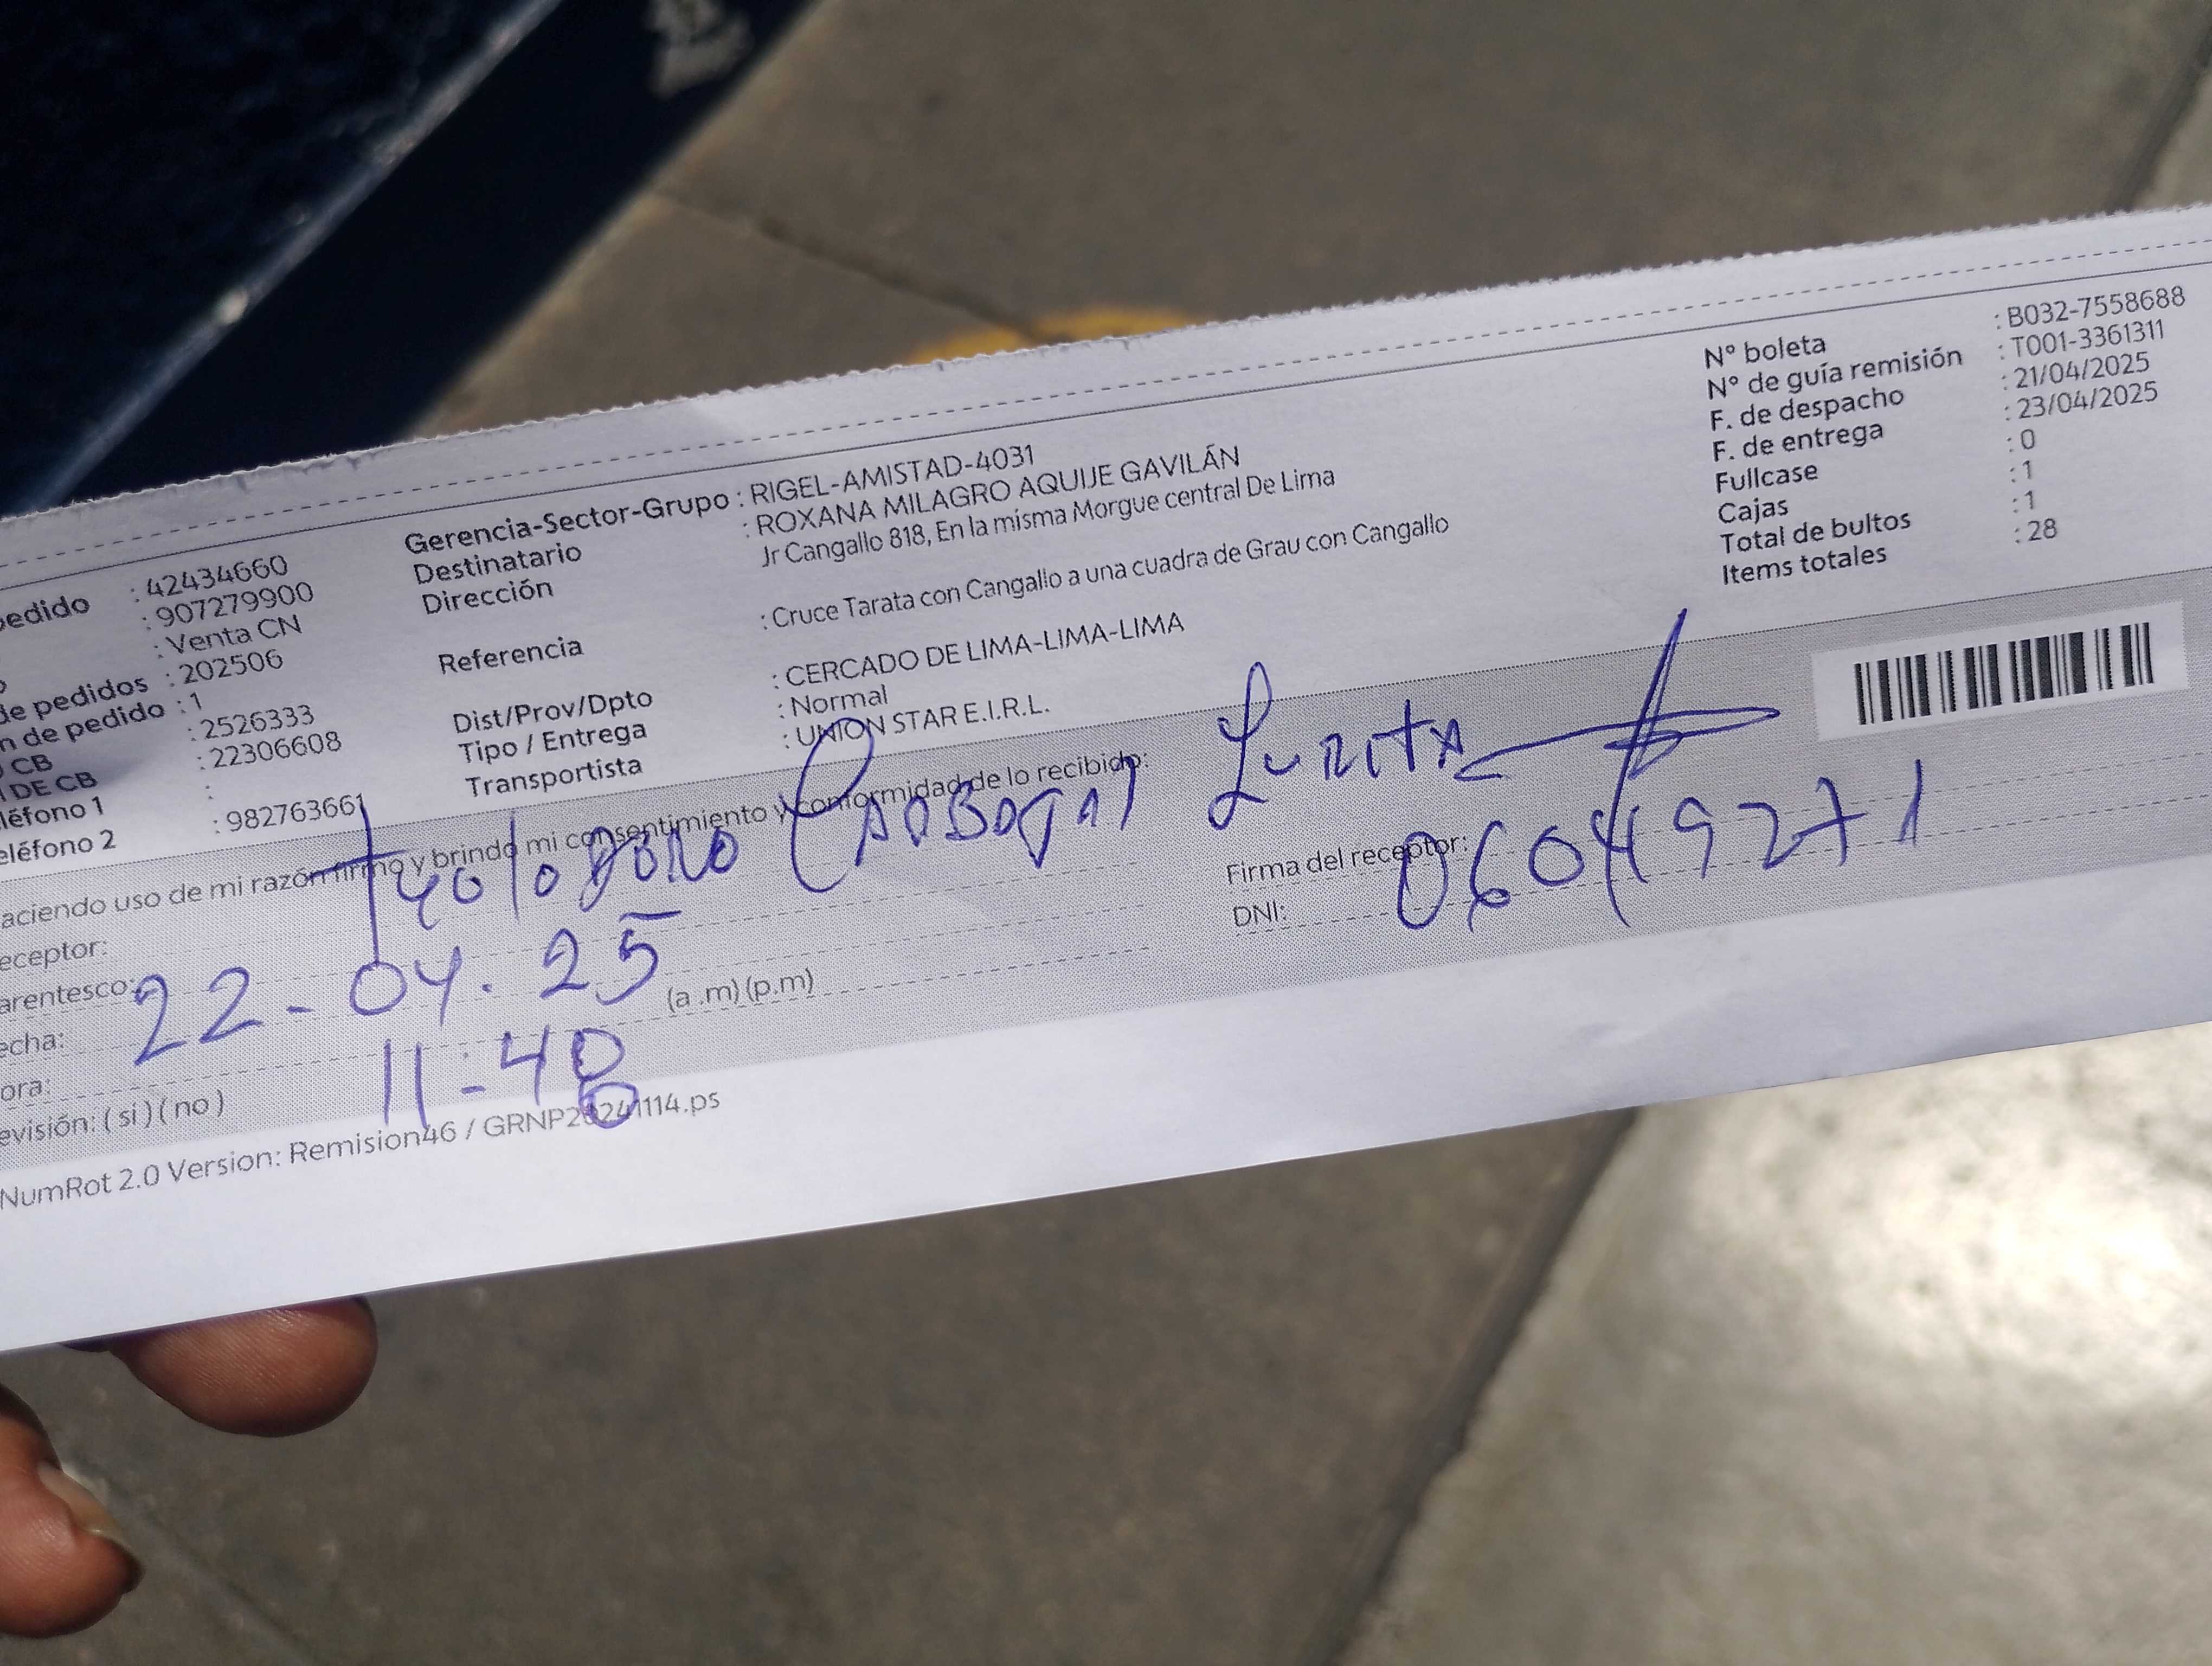 edido : 42434660
: 907279900
: Venta CN
de pedidos : 202506
n de pedido : 1
CB : 2526333
DE CB : 22306608
léfono 1 :
eléfono 2 : 982763661
Gerencia-Sector-Grupo : RIGEL-AMISTAD-4031
Destinatario : ROXANA MILAGRO AQUIJE GAVILÁN
Dirección Jr Cangallo 818, En la misma Morgue central De Lima
Referencia : Cruce Tarata con Cangallo a una cuadra de Grau con Cangallo
Dist/Prov/Dpto : CERCADO DE LIMA-LIMA-LIMA
Tipo / Entrega : Normal
Transportista : UNION STAR E.I.R.L.
N° boleta : B032-7558688
N° de guía remisión : T001-3361311
F. de despacho : 21/04/2025
F. de entrega : 23/04/2025
Fullcase : 0
Cajas : 1
Total de bultos : 1
Items totales : 28
aciendo uso de mi razón firmo y brindo mi consentimiento y conformidad de lo recibido:
eceptor:
arentesco:
echa: 22-04.25
ora: 11-40 (a .m) (p.m)
evisión: ( si ) ( no )
Firma del receptor:
DNI: 06049271
NumRot 2.0 Version: Remision46 / GRNP20241114.ps